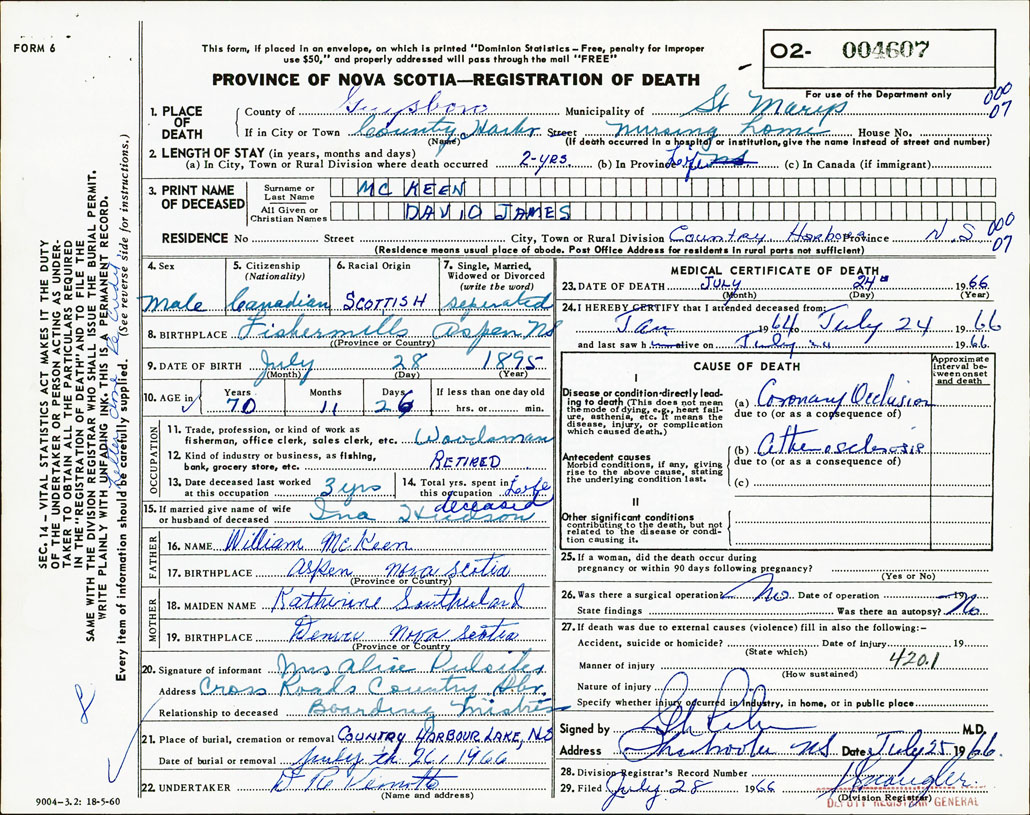 FORM 6
This form, if placed in an envelope, on which is printed "Dominion Statistics – Free, penalty for improper
use $50," and properly addressed will pass through the mail "FREE"
PROVINCE OF NOVA SCOTIA—REGISTRATION OF DEATH
O2- 004607
For use of the Department only
000
07
1. PLACE OF DEATH
County of Guysboro Municipality of St Marys
If in City or Town Country Harbr Street Nursing home House No.
(Name) (If death occurred in a hospital or institution, give name instead of street and number)
2. LENGTH OF STAY (in years, months and days)
(a) In City, Town or Rural Division where death occurred 2-yrs. (b) In Province Life (c) In Canada (if immigrant)
3. PRINT NAME OF DECEASED
Surname or Last Name MC KEEN
All Given or Christian Names DAVID JAMES
RESIDENCE No Street City, Town or Rural Division Country Harbour Province N.S
000
07
(Residence means usual place of abode. Post Office Address for residents in rural parts not sufficient)
4. Sex Male
5. Citizenship (Nationality) Canadian
6. Racial Origin SCOTTISH
7. Single, Married, Widowed or Divorced (write the word) separated
8. BIRTHPLACE Fishermills Aspen NS
(Province or Country)
9. DATE OF BIRTH July 28 1895
(Month) (Day) (Year)
10. AGE in Years 70 Months 11 Days 26 If less than one day old hrs. or min.
OCCUPATION
11. Trade, profession, or kind of work as fisherman, office clerk, sales clerk, etc. Woodsman
12. Kind of industry or business, as fishing, bank, grocery store, etc. RETIRED
13. Date deceased last worked at this occupation 3 yrs
14. Total yrs. spent in this occupation Life
15. If married give name of wife or husband of deceased Ina Hudson deceased
FATHER
16. NAME William McKeen
17. BIRTHPLACE Aspen Nova Scotia
(Province or Country)
MOTHER
18. MAIDEN NAME Katherine Southerland
19. BIRTHPLACE Denver Nova Scotia
(Province or Country)
20. Signature of informant Mrs Alice Pulsifer
Address Cross Roads Country Hbr.
Relationship to deceased Boarding Mistress
21. Place of burial, cremation or removal COUNTRY HARBOUR LAKE, N.S
Date of burial or removal July th 26, 1966
22. UNDERTAKER
(Name and address)
MEDICAL CERTIFICATE OF DEATH
23. DATE OF DEATH JULY 24th 1966
(Month) (Day) (Year)
24. I HEREBY CERTIFY that I attended deceased from:
Jan 1964 to July 24 1966
and last saw h alive on July 24 1966
CAUSE OF DEATH
Approximate interval between onset and death
I
Disease or condition directly leading to death (This does not mean the mode of dying, e.g., heart failure, asthenia, etc. It means the disease, injury, or complication which caused death.)
(a) Coronary Occlusion
due to (or as a consequence of)
Antecedent causes
Morbid conditions, if any, giving rise to the above cause, stating the underlying condition last.
(b) Atherosclerosis
due to (or as a consequence of)
(c)
II
Other significant conditions
contributing to the death, but not related to the disease or condition causing it.
25. If a woman, did the death occur during
pregnancy or within 90 days following pregnancy?
(Yes or No)
26. Was there a surgical operation? No. Date of operation 19
State findings Was there an autopsy? No
27. If death was due to external causes (violence) fill in also the following:–
Accident, suicide or homicide? Date of injury 19
(State which)
Manner of injury 420.1
(How sustained)
Nature of injury
Specify whether injury occurred in industry, in home, or in public place
Signed by M.D.
Address Sherbrooke NS Date July 25 1966
28. Division Registrar's Record Number
29. Filed July 28 1966
(Division Registrar)
DEPUTY REGISTRAR GENERAL
SEC. 14 – VITAL STATISTICS ACT MAKES IT THE DUTY
OF THE UNDERTAKER OR PERSON ACTING AS UNDER-
TAKER TO OBTAIN ALL THE PARTICULARS REQUIRED
IN THE "REGISTRATION OF DEATH" AND TO FILE THE
SAME WITH THE DIVISION REGISTRAR WHO SHALL ISSUE THE BURIAL PERMIT.
WRITE PLAINLY WITH UNFADING INK. THIS IS A PERMANENT RECORD.
Every item of information should be carefully supplied. (See reverse side for instructions.)
9004–3.2: 18-5-60